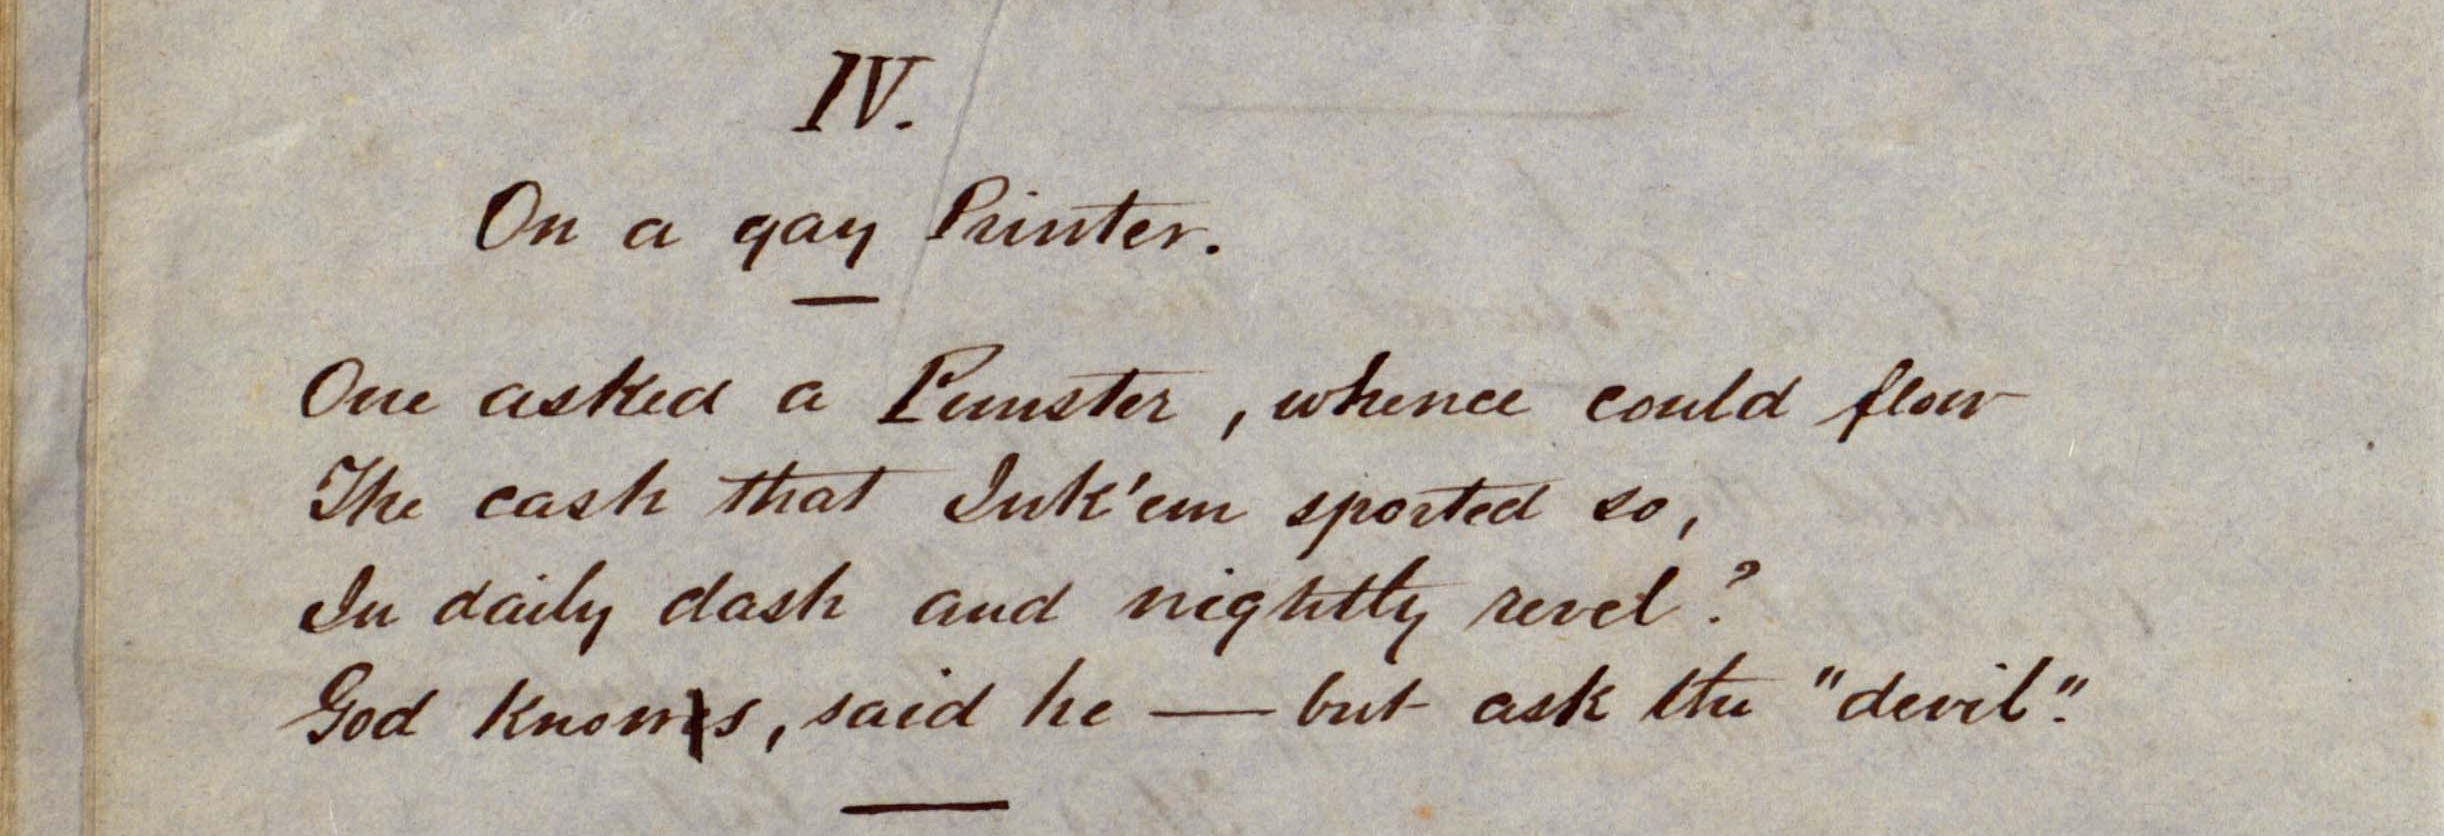 IV.
On a gay Printer.
One asked a Punster, whence could flow
The cash that Ink'em sported so,
In daily dash and nightly revel?
God knows, said he — but ask the "devil".